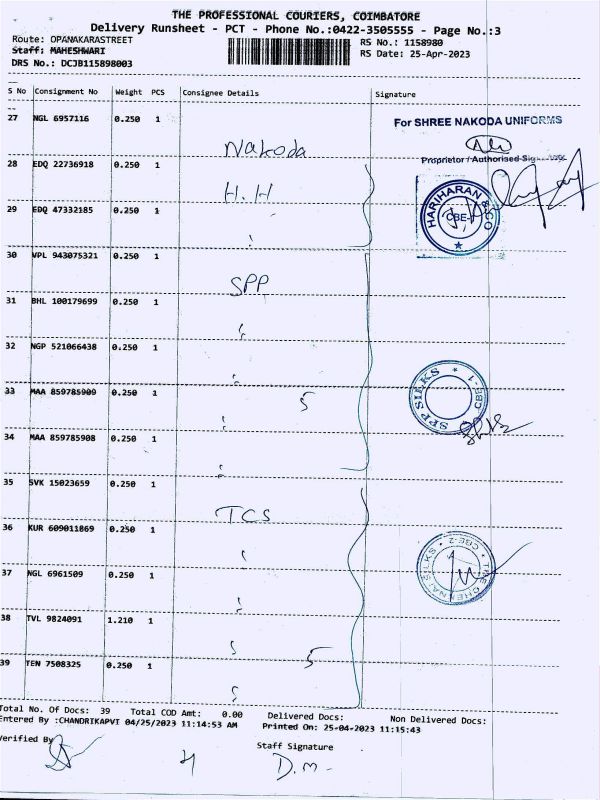 THE PROFESSIONAL COURIERS, COIMBATORE
Delivery Runsheet - PCT - Phone No.:0422-3505555 - Page No.:3
Route: OPANAKARASTREET RS No.: 1158980
Staff: MAHESHWARI RS Date: 25-Apr-2023
DRS No.: DCJB115898003
S No Consignment No Weight PCS Consignee Details Signature
27 NGL 6957116 0.250 1 Nakoda For SHREE NAKODA UNIFORMS
Proprietor / Authorised
28 EDQ 22736918 0.250 1 H.H
HARIHARAN & CO CBE-1
29 EDQ 47332185 0.250 1
30 VPL 943075321 0.250 1 SPP
31 BHL 100179699 0.250 1
32 NGP 521066438 0.250 1
33 MAA 859785909 0.250 1 5
SPP SILKS * CBE-1 *
34 MAA 859785908 0.250 1
35 SVK 15023659 0.250 1 TCS
36 KUR 609011869 0.250 1
THE CHENNAI SILKS * CBE-2 *
37 NGL 6961509 0.250 1
38 TVL 9824091 1.210 1 5
39 TEN 7508325 0.250 1
Total No. Of Docs: 39 Total COD Amt: 0.00 Delivered Docs: Non Delivered Docs:
Entered By :CHANDRIKAPVI 04/25/2023 11:14:53 AM Printed On: 25-04-2023 11:15:43
Verified By Staff Signature
D.M.